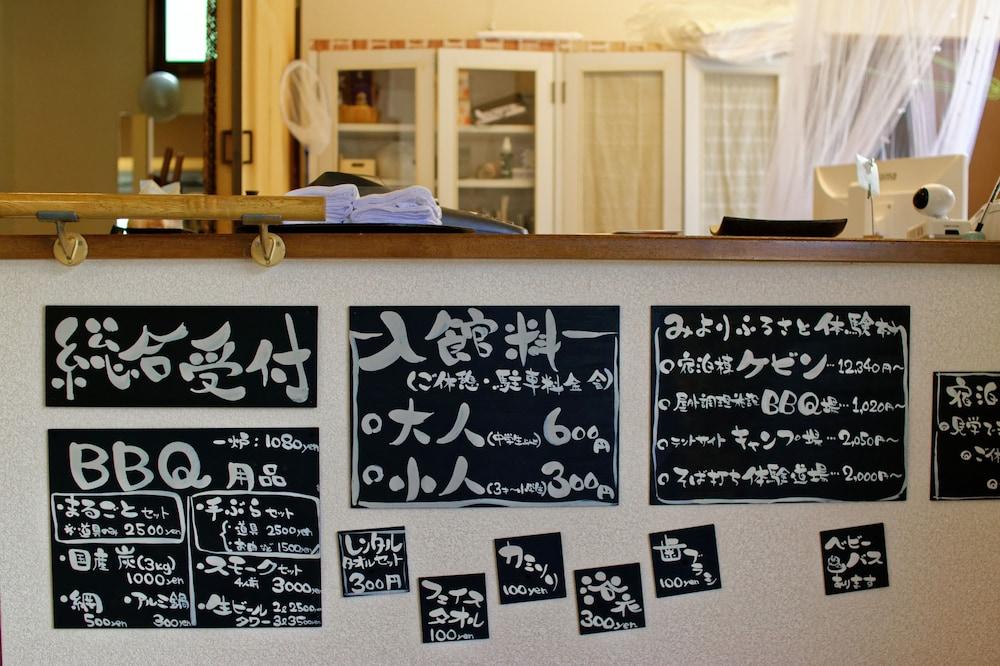 総合受付
BBQ 用品
一炉:1080yen
・まるごとセット
※道具のみ 2500yen
・国産炭(3kg)
1000yen
・網
500yen
アルミ鍋
300yen
・手ぶらセット
・道具 2500yen
1500yen
・スモークセット
4人前
3000yen
・生ビール 2ℓ2500yen
タワー 3ℓ3500yen
入館料
(ご休憩・駐車料金含)
○大人 600円
○小人 300円
みよりふるさと体験村
○宿泊棟 ケビン…12,340円～
○屋外調理施設 BBQ場…1,020円～
○テントサイト キャンプ場…2,050円～
○そば打ち体験道場…2,000円～
宿泊
レンタル
タオルセット
300円
フェイス
タオル
100yen
カミソリ
100yen
浴衣
300yen
歯ブラシ
100yen
ベビー
バス
あります